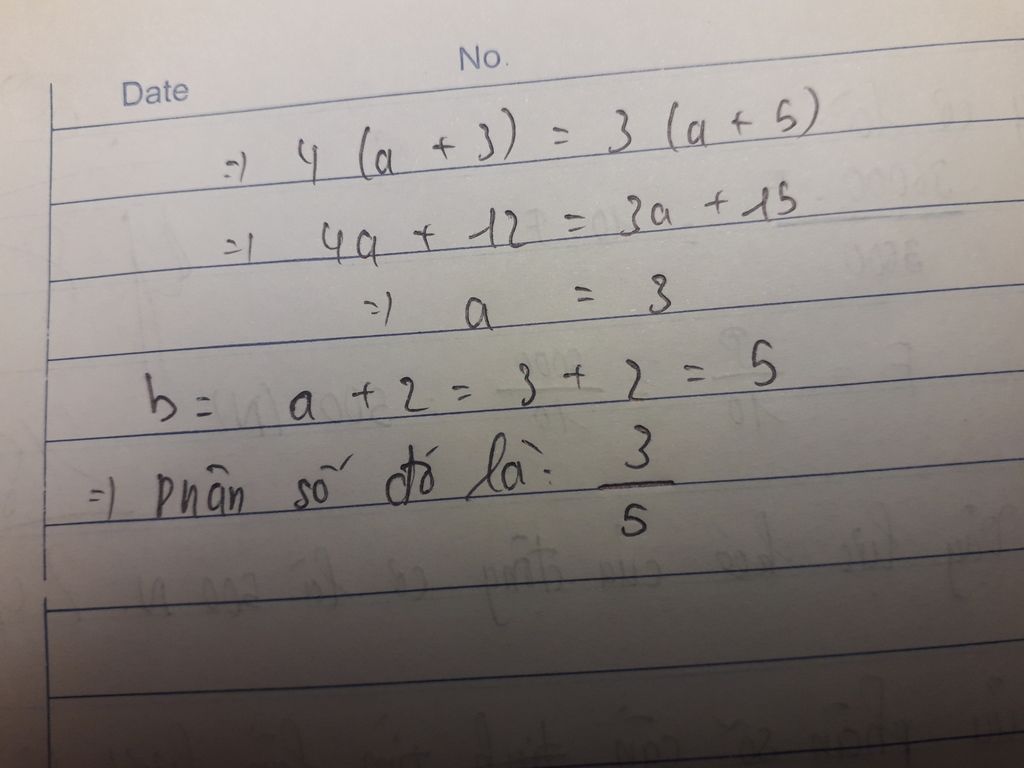 No.
Date
=> 4 (a + 3) = 3 (a + 5)
=> 4a + 12 = 3a + 15
=> a = 3
b = a + 2 = 3 + 2 = 5
=> Phân số đó là: 3/5